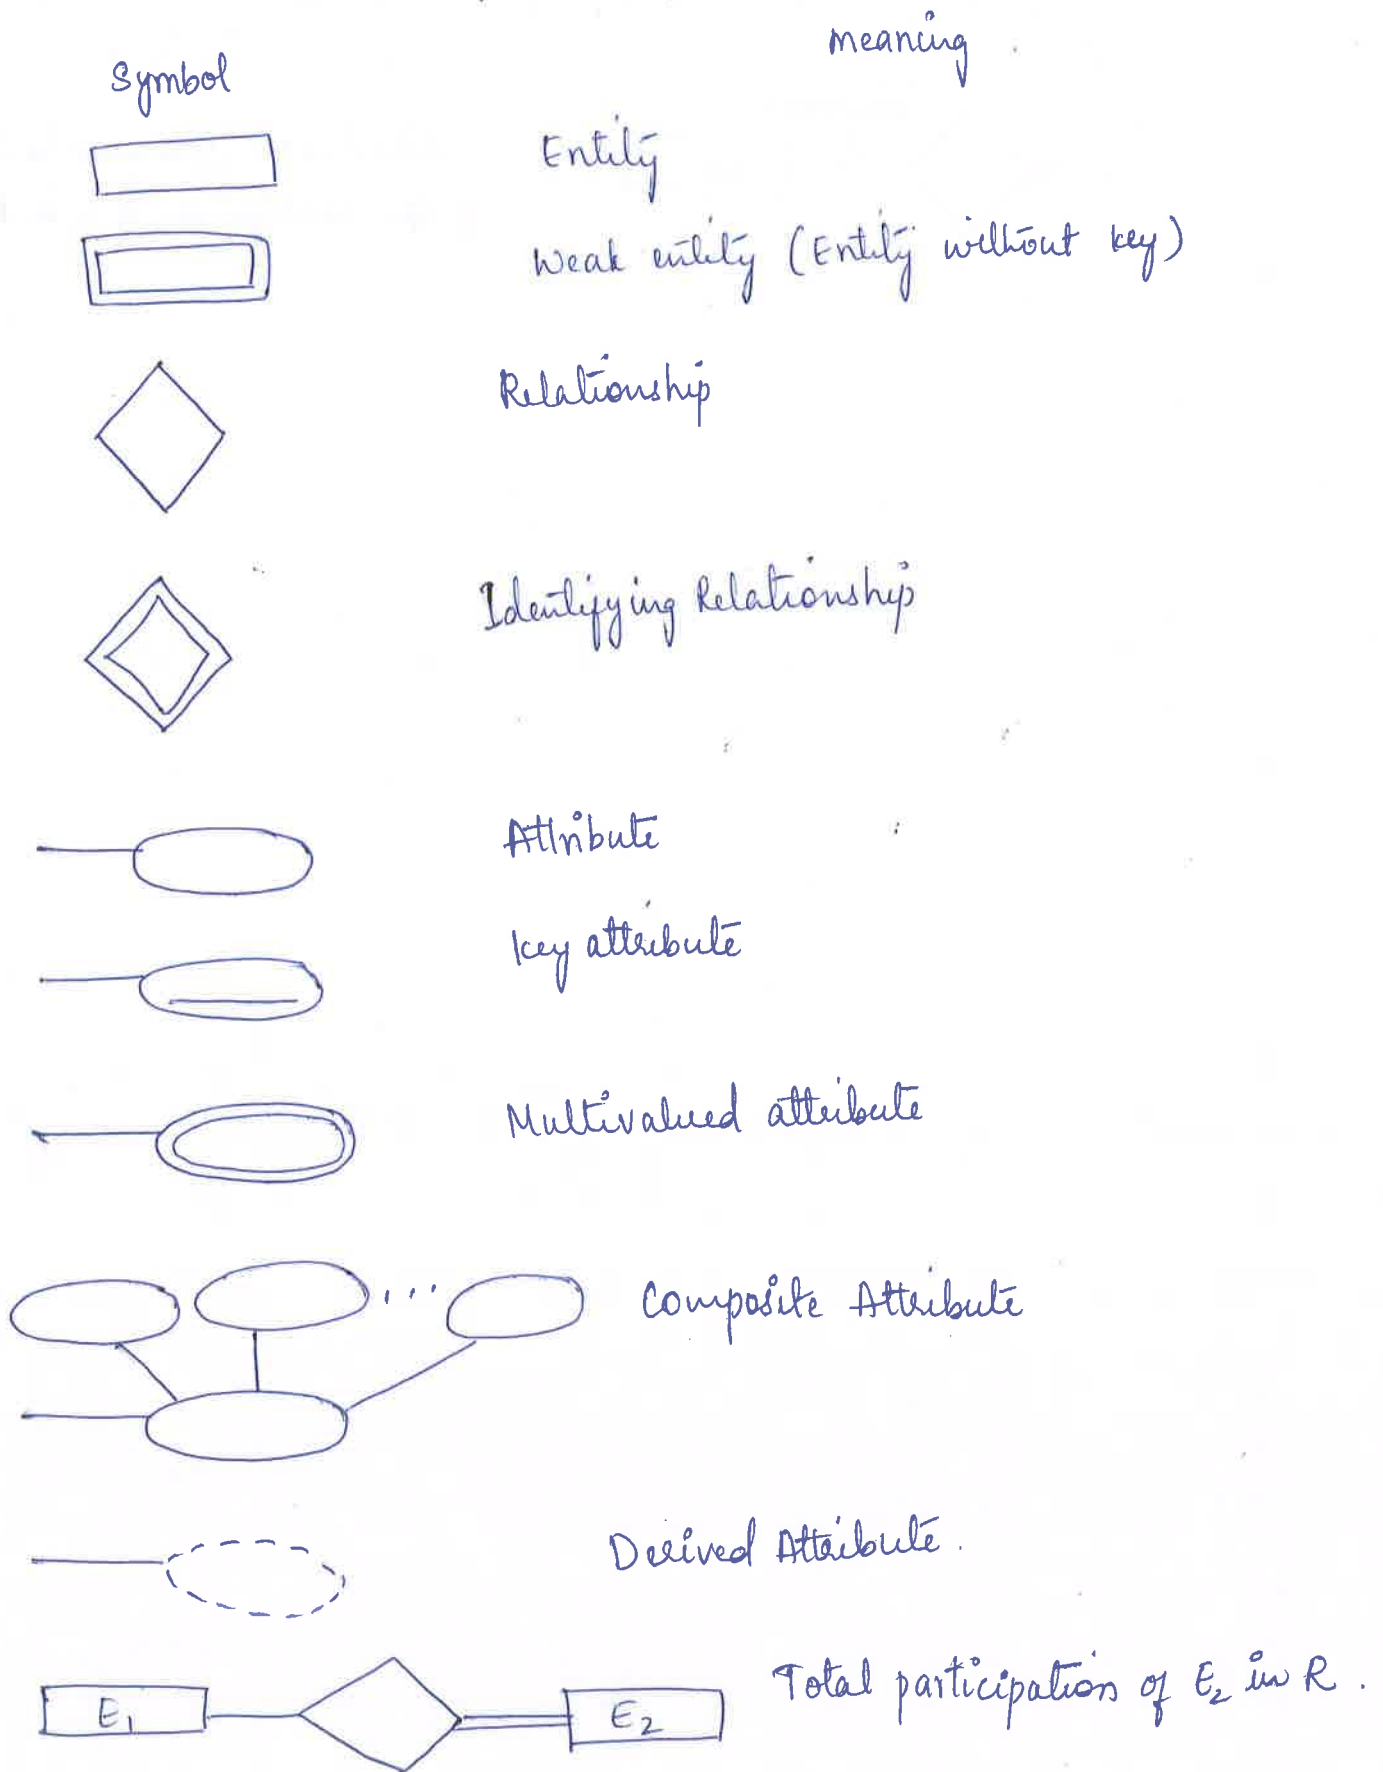 Symbol
meaning
Entity
Weak entity (Entity without key)
Relationship
Identifying Relationship
Attribute
key attribute
Multivalued attribute
...
Composite Attribute
Derived Attribute.
E1
E2
Total participation of E2 in R.